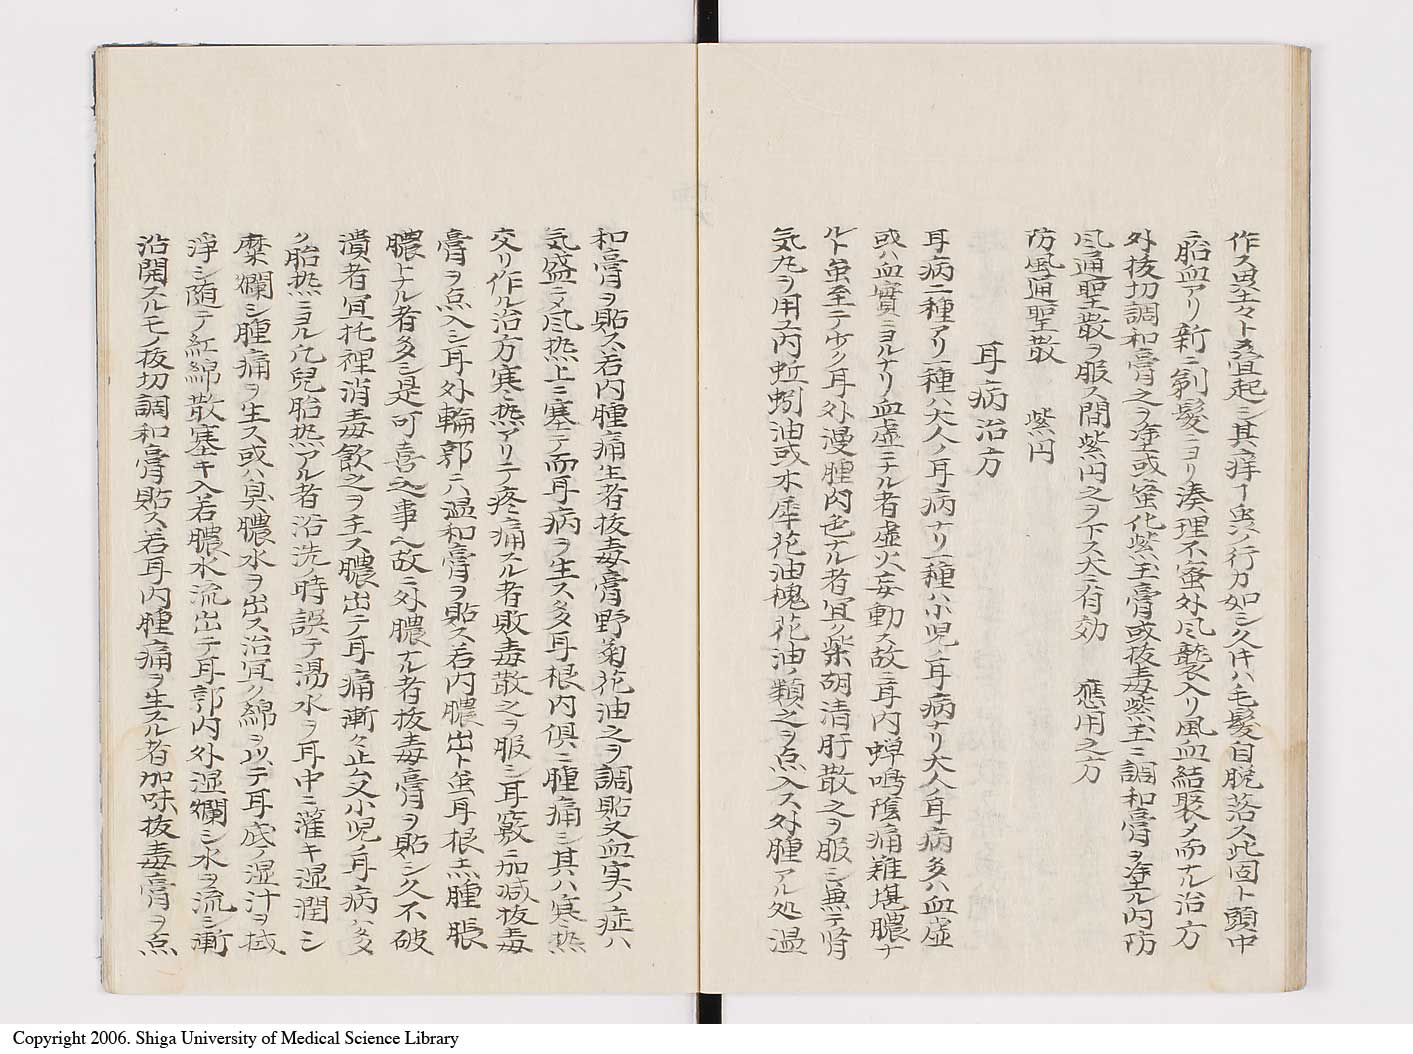 作ス累々トメ畳起シ其ノ痒ー虫ノ行カ如シ久ケハ毛髪自脱落ス此固ト頭中
ニ胎血アリ新ニ剃髪ニヨリ湊理不蜜外風襲入リ風血結聚メ而ナル治方
外抜切調和膏之ヲ塗或蜜化紫玉膏或抜毒紫玉ニ調和膏ヲ塗ル内防
風通聖散ヲ服ス間紫円之ヲ下ス大ニ有効　應用之方
防風通聖散　紫円
耳病治方
耳病二種アリ一種ハ大人ノ耳病ナリ一種ハ小児ノ耳病ナリ大人ノ耳病多ハ血虚
或ハ血實ニヨルナリ血虚ニナル者虚火妄動ス故ニ耳内蝉鳴陰痛難堪膿ナ
ルト虽至テ少ク耳外漫腫肉色ナル者冝ク柴胡清肝散之ヲ服シ兼テ腎
気丸ヲ用ユ内蚯蚓油或木犀花油槐花油ノ類之ヲ点入ス外腫アル処温
和膏ヲ貼ス若内腫痛生者抜毒膏野菊花油之ヲ調貼又血実ノ症ハ
気盛ニメ風热上ニ塞テ而耳病ヲ生ス多耳根内俱ニ腫痛シ其ハ寒热
交リ作ル治方寒热アリテ疼痛スル者敗毒散之ヲ服シ耳竅ニ加减抜毒
膏ヲ点入シ耳外輪郭ハ温和膏ヲ貼ス若内膿出ト虽耳根焮腫脹
膿トナル者多シ是可喜之事ヘ故ニ外膿ナル者抜毒膏ヲ貼シ久不破
潰者冝托裡消毒飲之ヲ主ス膿出テ耳痛漸ク止ム又小児ノ耳病ハ多
ク胎热ニヨル凢兒胎热アル者浴洗ノ時誤テ湯水ヲ耳中ニ灌キ湿潤シ
糜爛シ腫痛ヲ生ス或ハ臭膿水ヲ出ス治冝ク綿ヲ以テ耳底ノ湿汁ヲ拭
浄シ随テ紅綿散塞キ入若膿水流出テ耳郭内外湿爛シ水ヲ流シ漸
沿開スルモノ抜切調和膏貼ス若耳内腫痛ヲ生スル者加味抜毒膏ヲ点
Copyright 2006. Shiga University of Medical Science Library